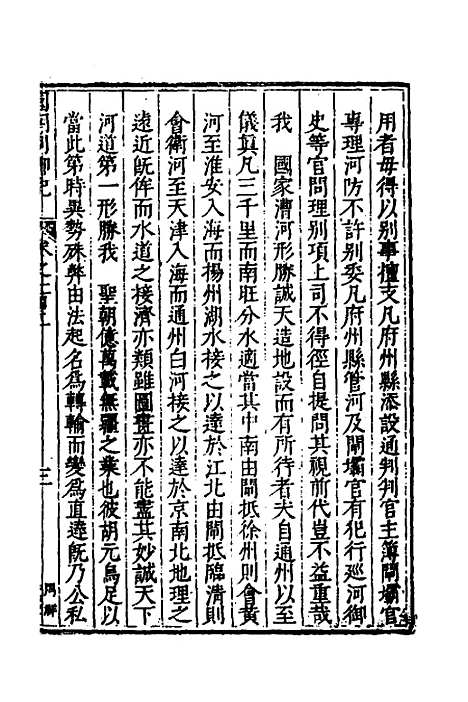 用者毋得以别事擅支凡府州縣添設通判判官主簿閘壩官
專理河防不許别委凡府州縣管河及閘壩官有犯行巡河御
史等官問理别項上司不得徑自提問其視前代豈不益重哉
我　國家漕河形勝誠天造地設而有所待者夫自通州以至
儀真凡三千里而南旺分水適當其中南由閘抵徐州則會黄
河至淮安入海而揚州湖水接之以達於江北由閘抵臨清則
會衛河至天津入海而通州白河接之以達於京南北地理之
遠近旣侔而水道之接濟亦類雖圖畫亦不能盡其妙誠天下
河道第一形勝我　聖朝億萬載無疆之業也彼胡元烏足以
當此第時異勢殊弊由法起名爲轉輸而變爲直達旣乃公私
卷之
三